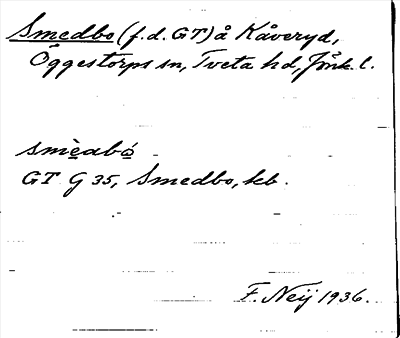 Smedbo (f.d. GT) å Kåveryd,
Öggestorps sn, Tveta hd, Jönk. l.
smèdbó
GT G 35, Smedbo, kb.
F. Neij 1936.